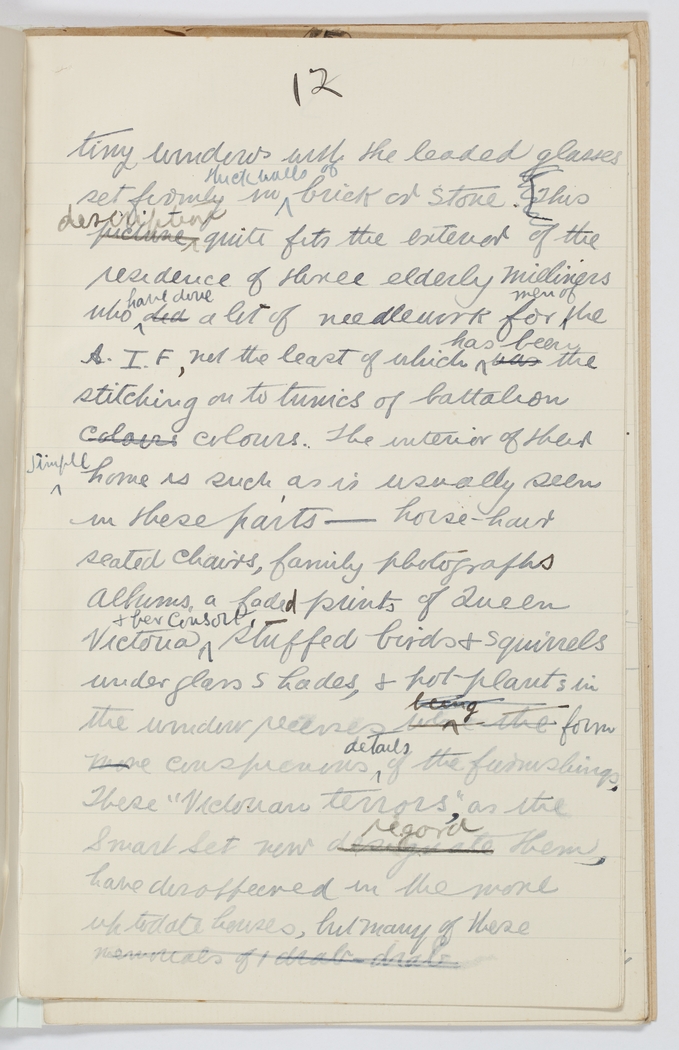 12
tiny windows with the leaded glasses
thick walls of
set firmly in ^ brick or stone. [This
description
picture, ^ quite fits the exterior of the
residence of three elderly milliners
have done men of
who ^ did a lot of needlework for ^ the
has been
A. I. F., not the least of which ^ was the
stitching on to tunics of battalion
colours colours. The interior of their
simple
^ home is such as is usually seen
in these parts — horse-hair
seated chairs, family photographs
albums, a faded prints of Queen
+ her Consort,
Victoria, ^ stuffed birds & squirrels
under glass shades, & pot-plants in
being
the window recesses ^ the form
details
more conspicuous ^ of the furnishings.
These "Victorian terrors", as the
regard
Smart Set now designate them,
have disappeared in the more
up to date houses, but many of these
memorials of drab drab